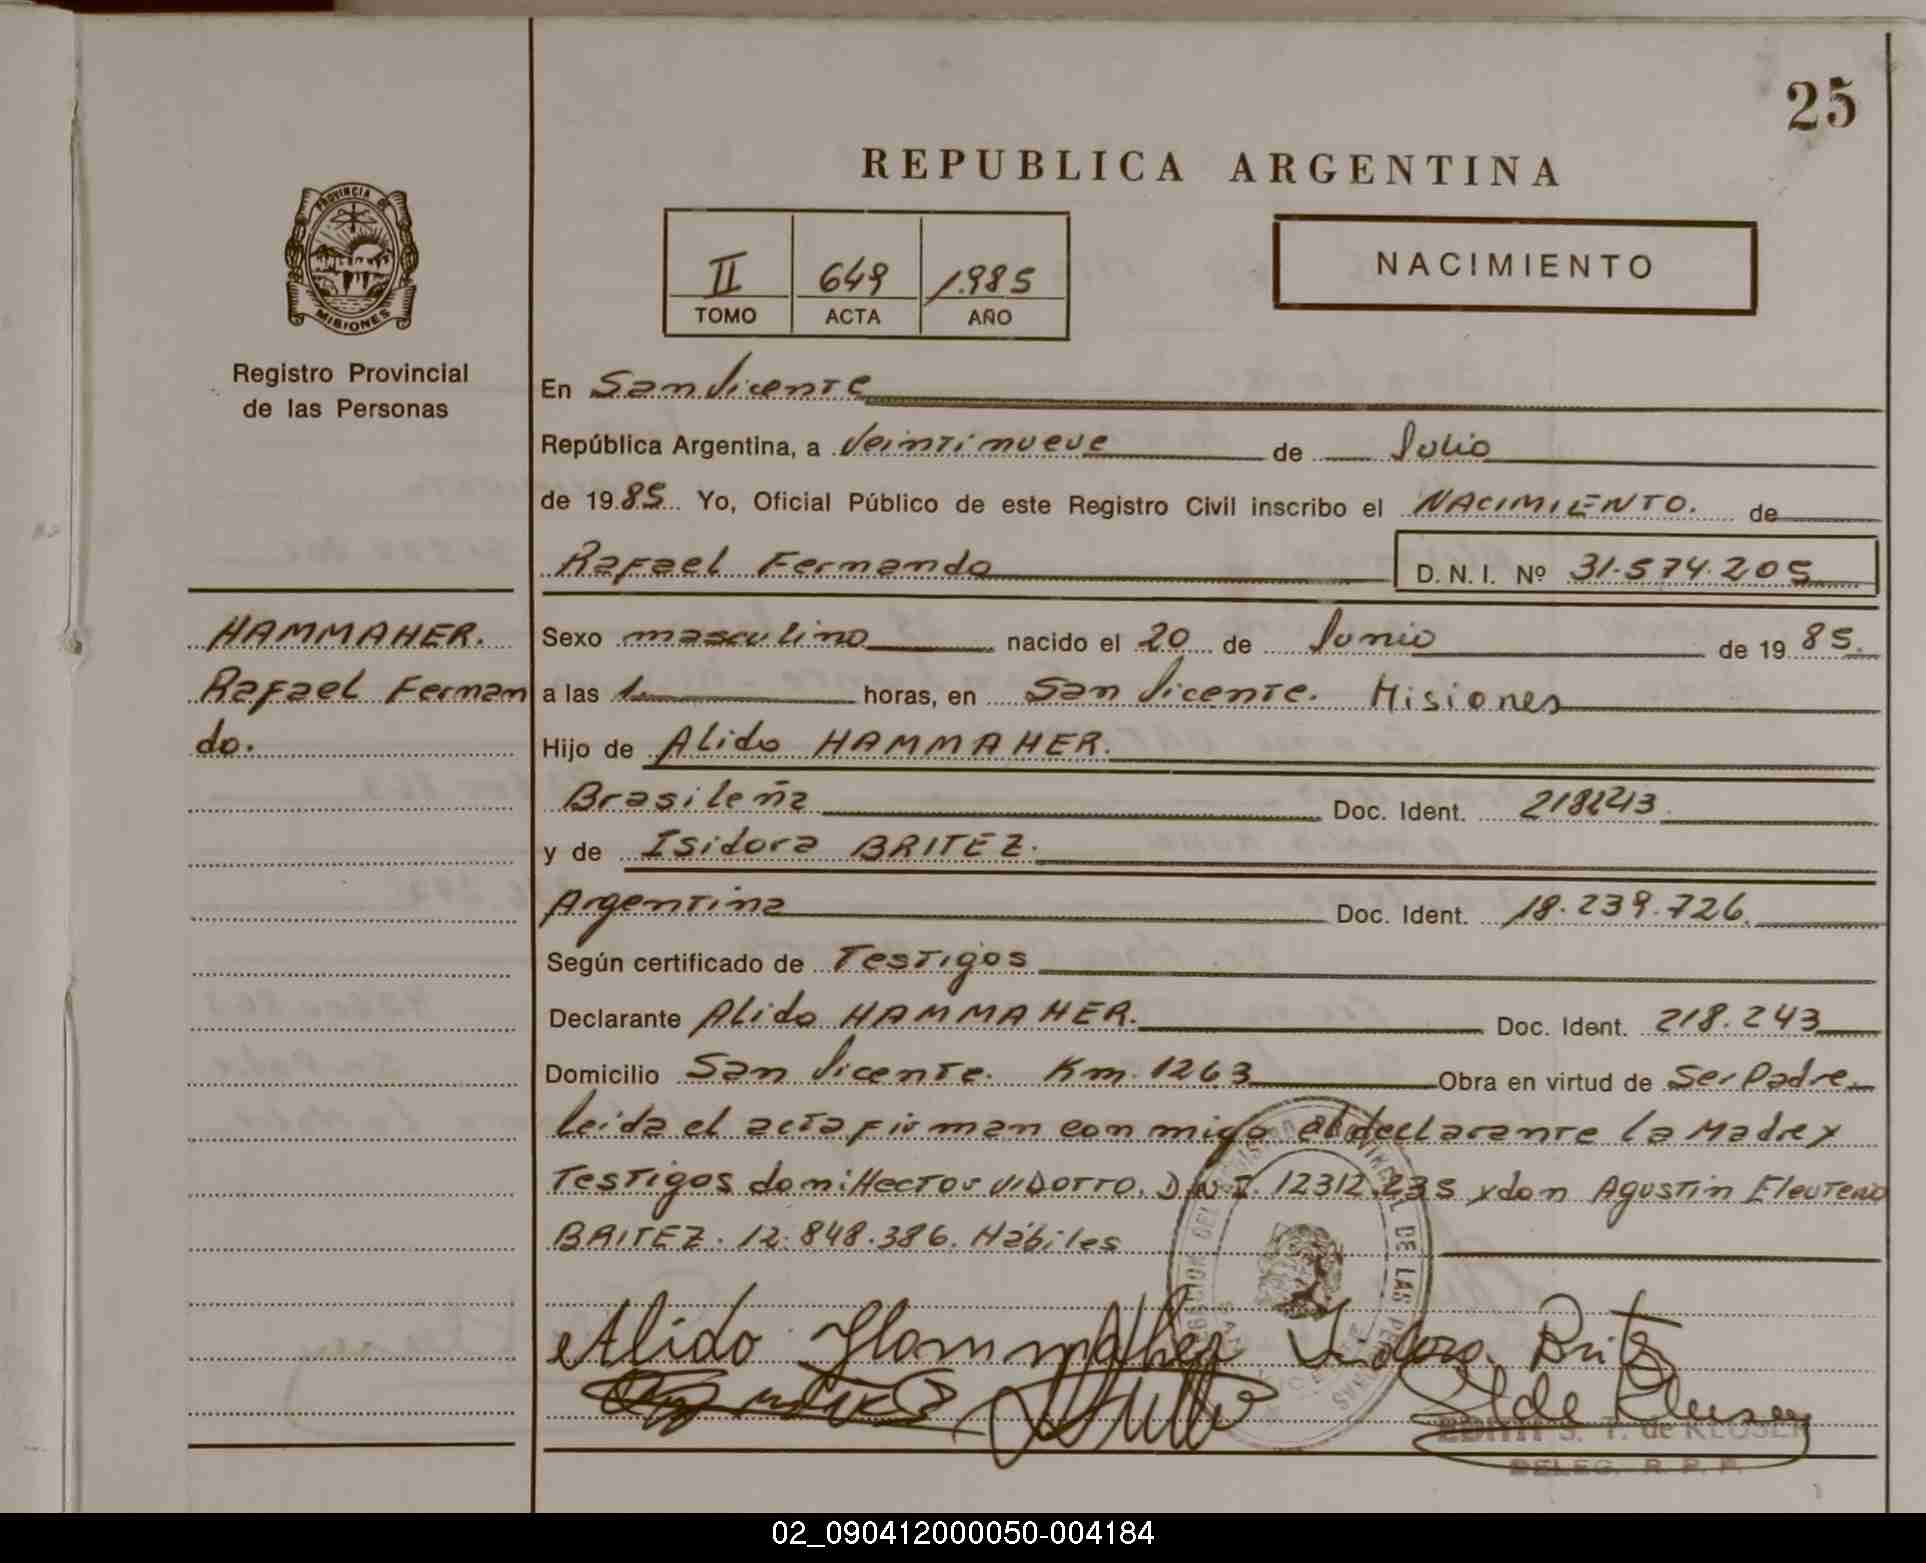 25
REPUBLICA ARGENTINA
PROVINCIA DE
MISIONES
Registro Provincial
de las Personas
II 649 1.985
TOMO ACTA AÑO
NACIMIENTO
En San Vicente
República Argentina, a Veintinueve de Julio
de 1985 Yo, Oficial Público de este Registro Civil inscribo el NACIMIENTO. de
Rafael Fernando D. N. I. Nº 31.574.205
HAMMAHER.
Rafael Fernan
do.
Sexo masculino nacido el 20 de Junio de 1985.
a las 1 horas, en San Vicente. Misiones
Hijo de Alido HAMMAHER.
Brasileña Doc. Ident.
y de Isidora BRITEZ.
Argentina Doc. Ident. 18.239.726.
Según certificado de Testigos
Declarante Alido HAMMAHER. Doc. Ident. 218.243
Domicilio San Vicente. Km. 1263 Obra en virtud de Ser Padre
Leida el acta firman conmigo el declarante la Madre y
Testigos don: Hector VIDOTTO. D.N.I. 12312.235 y don Agustin Eleuterio
BRITEZ. 12.848.386. Hábiles
Alido Hammaher Isidora Britez
EDITH S. T. de KLUSER
DELEG. R. P. P.
02_090412000050-004184